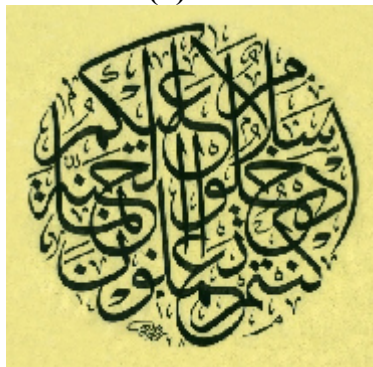 سلام عليكم
ادخلوا الجنة بما
كنتم تعملون